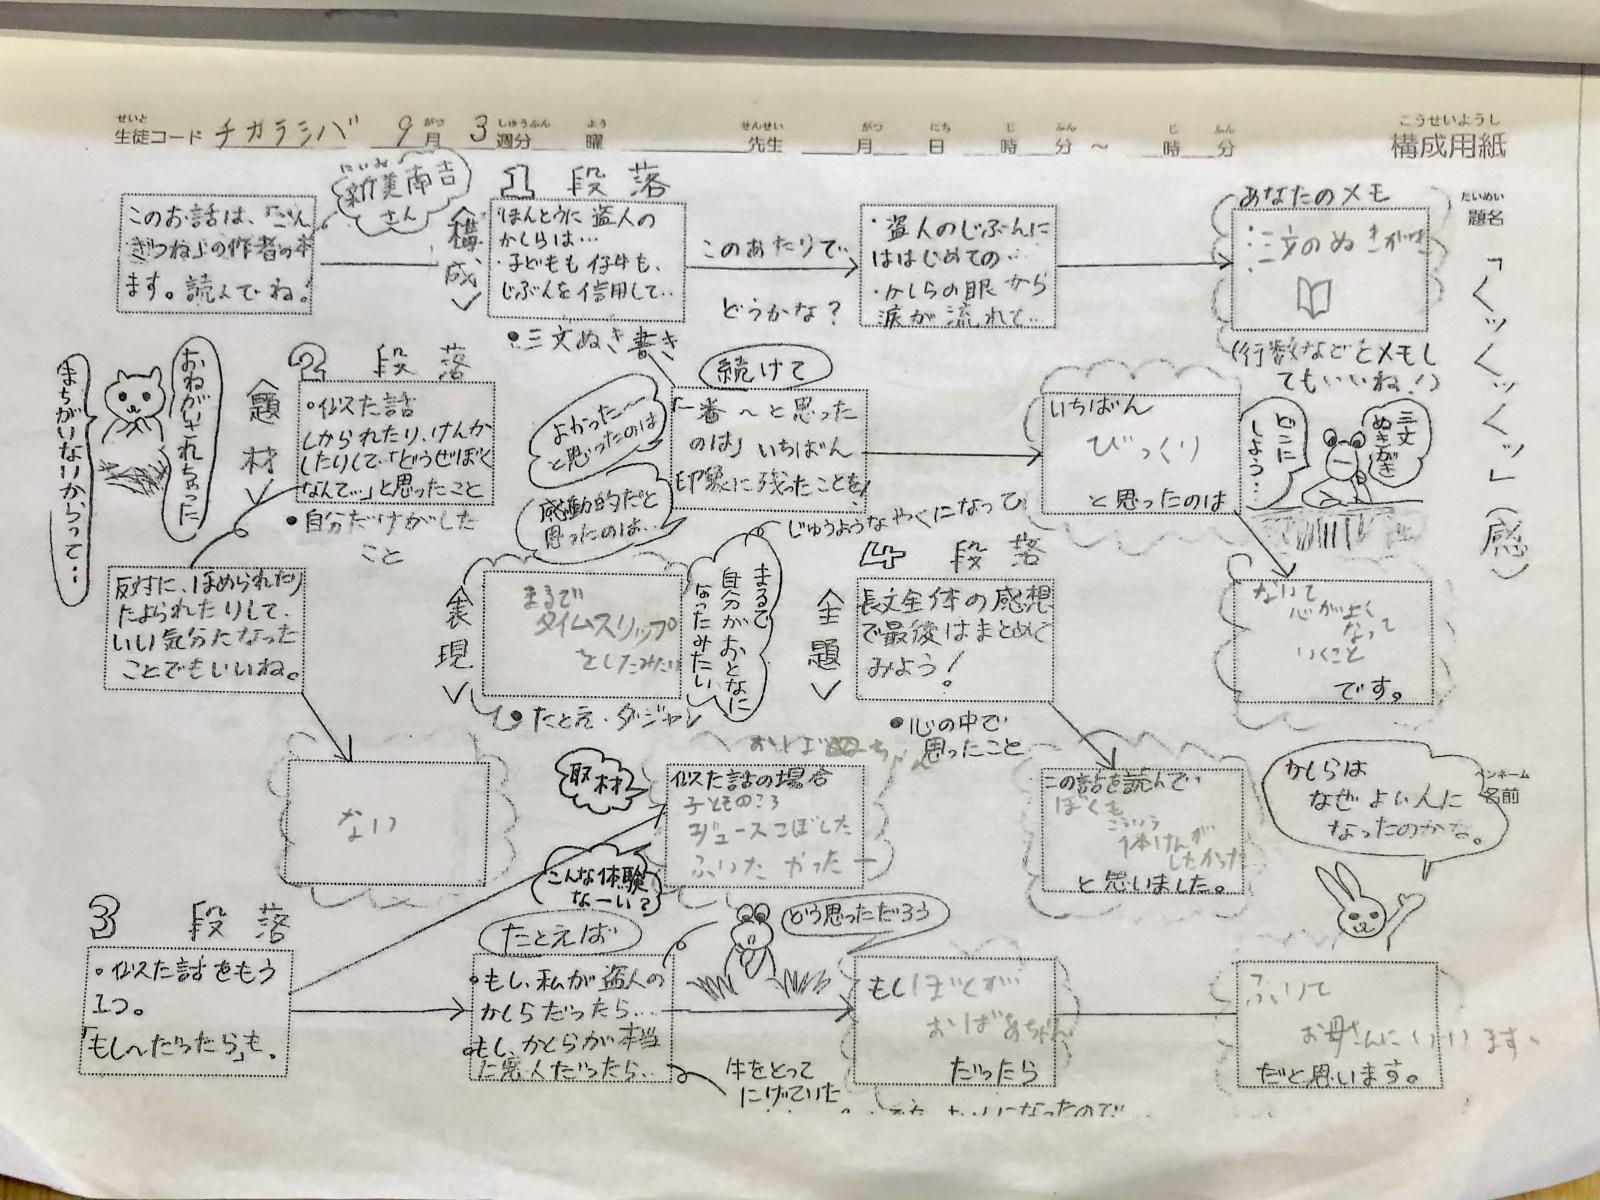 せいと
生徒コード チカラシバ 9月 3週分 曜 先生 月 日 時 分 〜 時 分
がつ しゅうぶん よう せんせい がつ にち じ ふん じ ふん
こうせいようし
構成用紙
だいめい
題名
「くッくッくッ」(感)
ペンネーム
名前
にいみ
新美南吉
さん
このお話は、「ごん
ぎつね」の作者の本
ます。読んでね!
1 段落
〈構成〉
・ほんとうに盗人の
かしらは…
・子どもも仔牛も、
じぶんを信用して…
●三文ぬき書き
このあたりで…
どうかな?
・盗人のじぶんに
ははじめての…
・かしらの眼から
涙が流れて…
あなたのメモ
・三文のぬきがき
(行数などをメモし
てもいいね!)
まちがいないからって…
おねがいされちゃった
2 段落
〈題材〉
・似た話
しかられたり、けんか
したりして、「どうせぼく
なんて…」と思ったこと
●自分だけがした
こと
反対に、ほめられたり
たよられたりして、
いい気分になった
ことでもいいね。
ない
続けて
「一番〜と思った
のは」いちばん
印象に残ったことを!
よかった〜
と思ったのは
感動的だと
思ったのは…
いちばん
びっくり
と思ったのは
三文
ぬきがき
どこに
しよう…
ないて
心がよく
なって
いくこと
です。
〈表現〉
まるで
タイムスリップ
をしたみたい
●たとえ・ダジャレ
じゅうようなやくになって
まるで
自分がおとなに
なったみたい
4 段落
〈主題〉
長文全体の感想
で最後はまとめて
みよう!
●心の中で
思ったこと
この話を読んで、
ぼくも
こういう
体けんが
したかった
と思いました。
かしらは
なぜよい人に
なったのかな。
取材
こんな体験
なーい?
似た話の場合
子どものころ
ジュースこぼした
ふいたかったー
3 段落
・似た話をもう
1つ。
「もし〜だったら」も。
たとえば
・もし、私が盗人の
かしらだったら…
どう思っただろう
牛をとって
にげていた
もしぼくが
おばあちゃん
だったら
ふいて
お母さんにいいます、
だと思います。